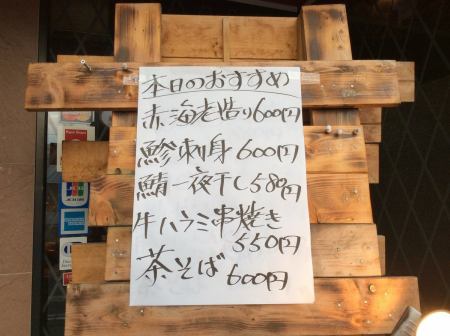 本日のおすすめ
赤海老造り600円
鯵刺身600円
鯖一夜干し580円
牛ハラミ串焼き
550円
茶そば600円
JCB